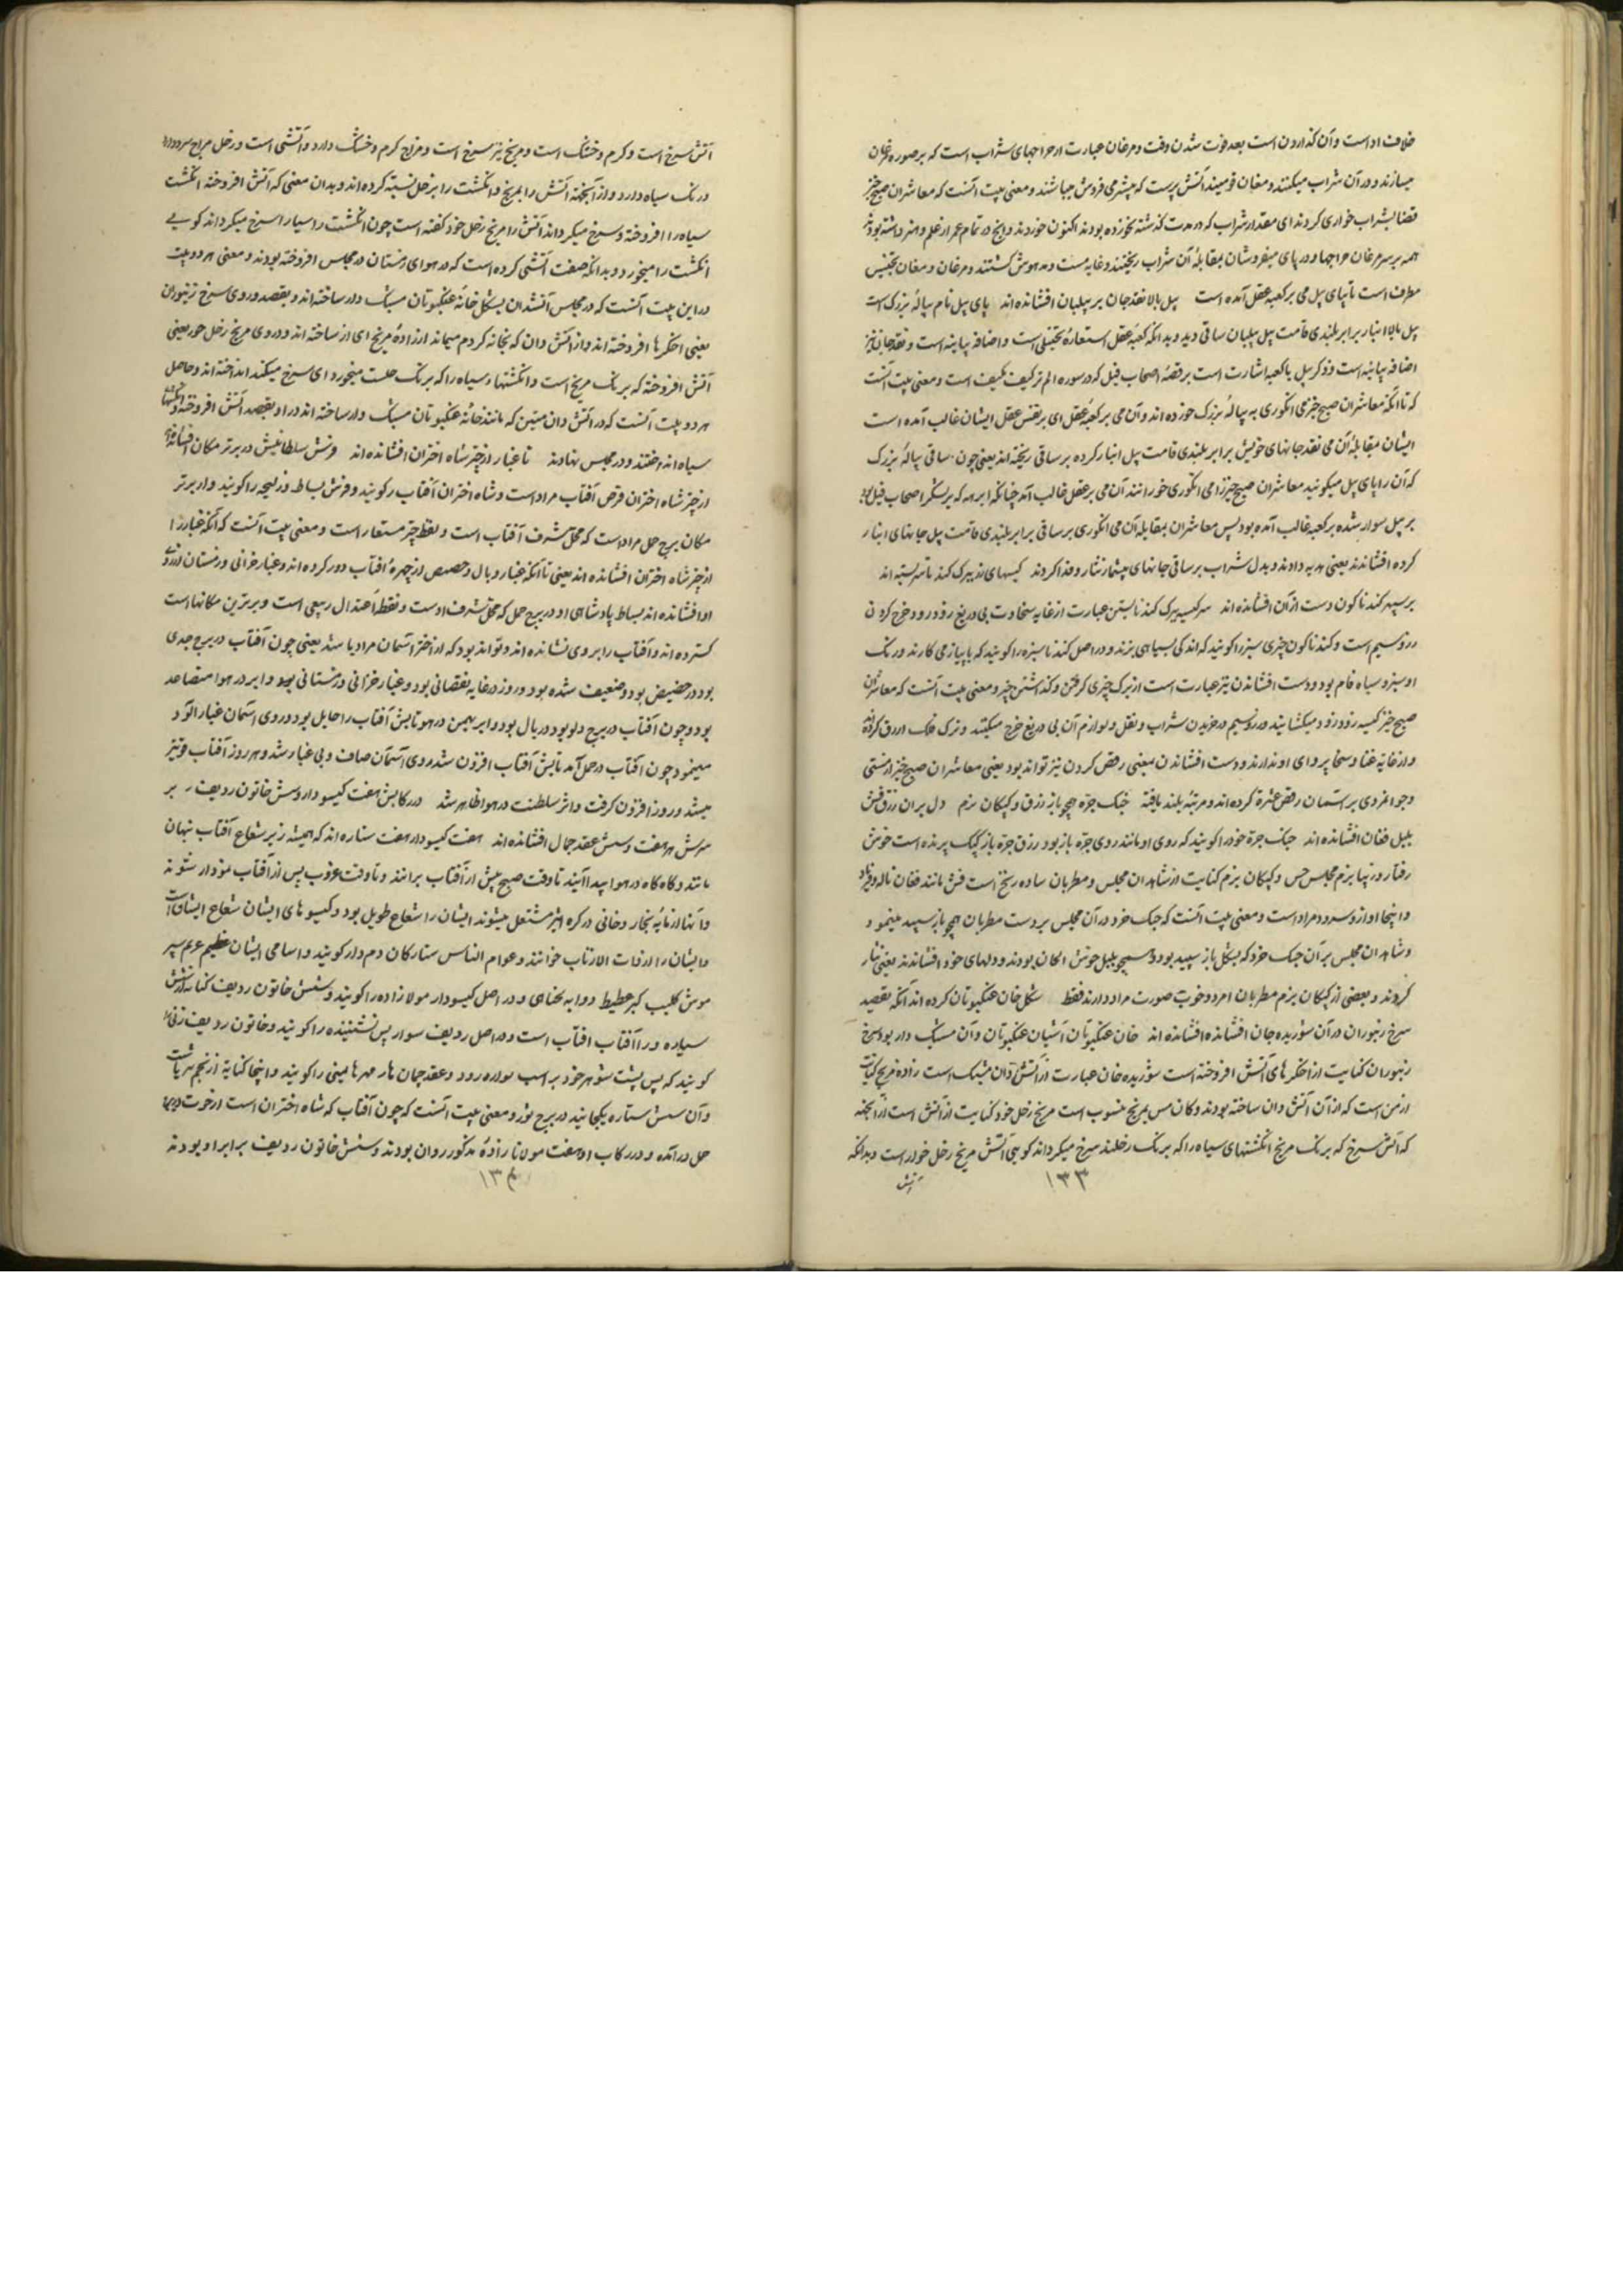 خلاف اداست و آن گذاردن است بعد فوت شدن وقت و مرغان عبارت از صراحیهای شراب است که بر صوره مرغان
میسازند و در آن شراب میکنند و مغان قومیند آتش پرست که بیشتر می فروش میباشند و معنی بیت آنست که معاشران صبح خیز
قضا بشراب خواری کردند ای مقدار شراب که در مدت گذشته نخورده بودند اکنون خوردند و آنچ در تمام عمر از علم و هنر داشته بودند
همه بر سر مرغان صراحیها و در پای میفروشان بمقابلهٔ آن شراب ریختند و غایه مست و مدهوش گشتند و مرغان و مغان تجنیس
مطرف است تا پای پیل می بر کعبه عقل آمده است پیل بالا نقد جان بر پیلبان افشانده اند پای پیل نام پیالهٔ بزرک است
پیل بالا انبار برابر بلندی قامت پیل پیلبان ساقی دید و بدانکه کعبه عقل استعارهٔ تخییلی است و اضافه بیانیه است و نقد جان نیز
اضافه بیانیه است و ذکر پیل با کعبه اشارت است بر قصهٔ اصحاب فیل که در سوره الم تر کیف است و معنی بیت آنست
که تا آنکه معاشران صبح خیز می انگوری به پیالهٔ بزرک خورده اند و آن می بر کعبهٔ عقل ای بر نفس عقل ایشان غالب آمده است
ایشان بمقابلهٔ آن می نقد جانهای خویش برابر بلندی قامت پیل انبار کرده بر ساقی ریخته اند یعنی چون ساقی پیالهٔ بزرک
که آن را پای پیل میگویند معاشران صبح خیز را می انگوری خورانند آن می بر عقل غالب آمد چنانکه ابرهه که بر لشکر اصحاب فیل بود
بر پیل سوار شده بر کعبه غالب آمده بود پس معاشران بمقابلهٔ آن می انگوری بر ساقی برابر بلندی قامت پیل جانهای انبار
کرده افشاندند یعنی هدیه دادند و بدل شراب بر ساقی جانهای بیشمار نثار و فدا کردند کیسهای زر ببرک گندنا سر بسته اند
بر سپهر گندناگون دست ازان افشانده اند سر کیسه ببرک گندنا بستن عبارت از غایه سخاوت بی دریغ زود زود خرج کردن
زر و سیم است و گندناگون چیزی سبز را گویند که اندکی بسیاهی بزند و در اصل گندنا سبزه را گویند که با پیاز می کارند و رنگ
او سبز و سیاه فام بود و دست افشاندن نیز عبارت است از ترک چیزی گرفتن و گذاشتن چیز و معنی بیت آنست که معاشران
صبح خیز کیسه زر زود زود میگشایند و زر و سیم در خریدن شراب و نقل و لوازم آن بی دریغ خرج میکنند و ترک فلک ازرق کرده اند
و از غایه غنا و سخا پروای او ندارند و دست افشاندن بمعنی رقص کردن نیز تواند بود یعنی معاشران صبح خیز از مستی
و جوانمردی بر آسمان رقص عشرة کرده اند و مرتبهٔ بلند یافته چنک جره همچو باز زرق و کبکان بزم دل بران زرق فش
بلبل فغان افشانده اند چنک جره خود را گویند که روی او مانند روی جره باز بود زرق جره باز کبک پرنده است خوش
رفتار و زیبا بزم مجلس و کبکان بزم کنایت از شاهدان مجلس و مطربان ساده رنخ است فش مانند فغان ناله و فریاد
و اینجا اواز و سرود مراد است و معنی بیت آنست که چنک خرد در آن مجلس بر دست مطربان همچو باز سپید مینمود
و شاهدان مجلس بر آن چنک خرد که بشکل باز سپید بود و همچو بلبل خوش الحان بودند و دلهای خود افشاندند یعنی نثار
کردند و بعضی از کبکان بزم مطربان امرد و خوب صورت مراد دارند فقط شکل خان عنکبوتان کرده اند آنکه بقصد
سرخ زنبوران در آن شوریده جان افشانده اند خان عنکبوتان آشیان عنکبوتان و آن مشبک دار بود سرخ
زنبوران کنایت از اخگرهای آتش افروخته است شوریده خان عبارت از آتش دان مشبک است زادهٔ مریخ کنایت
از من است که از آن آتش دان ساخته بودند و کان مس بمریخ منسوب است مریخ زحل خود کنایت از آتش است از آنجهة
که آتش سرخ که برنگ مریخ انگشتهای سیاه را که برنگ زحلند سرخ میگرداند گویی آتش مریخ زحل خور است و بدانکه
آتش
۱۳۳
آتش سرخ است و گرم و خشک است و مریخ نیز سرخ است و مزاج گرم و خشک دارد و آتشی است و زحل مزاج سرد دارد
و رنگ سیاه دارد و از آنجهة آتش را بمریخ و انگشت را بزحل نسبة کرده اند و بدان معنی که آتش افروخته انگشت
سیاه را افروخته و سرخ میگرداند آتش را مریخ زحل خود گفته است چون انگشت را سیار اسرخ میگرداند گویی
انگشت را میخورد و بدانکه صفت آتشی کرده است که در هوای زمستان در مجلس افروخته بودند و معنی هر دو بیت
در این بیت آنست که در مجلس آتشدان بشکل خانهٔ عنکبوتان مشبک دار ساخته اند و بقصد و روی سرخ زنبوران
یعنی اخگرها افروخته اند و از آتش دان که بخانه کردم میماند از زادهٔ مریخ ای از ساخته اند و در وی مریخ زحل خور یعنی
آتش افروخته که برنگ مریخ است و انگشتها سیاه را که برنگ حلست میخورد ای سرخ میکند انداخته اند و حاصل
هر دو بیت آنست که در آتش دان مسین که مانند خانهٔ عنکبوتان مشبک دار ساخته اند در او بقصد آتش افروخته و انگشتها
سیاه انداختند و در مجلس نهادند تا غبار از چتر شاه اختران افشانده اند فرش سلطانیش در برتر مکان افشانده اند
از چتر شاه اختران قرص آفتاب مراد است و شاه اختران آفتاب را گویند و فرش بساط و زلیچه را گویند و از برتر
مکان برج حمل مراد است که محل شرف آفتاب است و لفظ چتر مستعار است و معنی بیت آنست که آنکه غبار را
از چتر شاه اختران افشانده اند یعنی تا آنکه غبار و بال و حضیض از چهرهٔ آفتاب دور کرده اند و غبار خزانی و زمستان از روی
او افشانده اند بساط پادشاهی او در برج حمل که محل شرف اوست و نقطهٔ اعتدال ربیعی است و برترین مکانهاست
گسترده اند و آفتاب را بر وی نشانده اند و تواند بود که از اختر آسمان مراد باشد یعنی چون آفتاب در برج جدی
بود در حضیض بود و ضعیف شده بود و روز در غایه نقصانی بود و غبار خزانی و زمستانی بود و ابر در هوا متصاعد
بود و چون آفتاب در برج دلو بود در بال بود و ابر بهمن در هوا تابش آفتاب را حایل بود و روی آسمان غبار آلود
مینمود چون آفتاب در حمل آمد تابش آفتاب افزون شد روی آسمان صاف و بی غبار شد و هر روز آفتاب قویتر
میشد و روز افزون گرفت و اثر سلطنت در هوا ظاهر شد در رکابش هفت گیسودار و شش خاتون ردیف بر
سرش هر هفت و شش عقد جمال افشانده اند هفت گیسودار هفت ستاره اند که همیشه زیر شعاع آفتاب نهان
مانند و گاه گاه در هوا پیدا آیند تا وقت صبح پیش از آفتاب برانند و تا وقت غروب پس از آفتاب نمودار شوند
و آنها از مایهٔ بخار دخانی در کره اثیر مشتعل میشوند ایشان را شعاع طویل بود و گیسوهای ایشان شعاع ایشانست
و ایشان را ذوات الاذناب خوانند و عوام الناس ستارگان دم دار گویند و اسامی ایشان
سیاره ورا آفتاب است و در اصل ردیف سوار پس نشیننده را گویند و خاتون ردیف زنی
گویند که پس پشت شوهر خود بر اسب سواره رود و عقد جمان هار مهرهای مینی را گویند و اینجا کنایة از نجم ثریاست
و آن شش ستاره یکجانند در برج ثور و معنی بیت آنست که چون آفتاب که شاه اختران است از حوت در برج
حمل درآمده و در رکاب او هفت مولانا زادهٔ مذکور روان بودند و شش خاتون ردیف برابر او بودند
۱۳۴